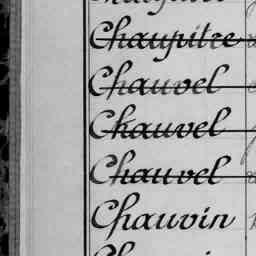 Chaupitre
Chauvel
Chauvel
Chauvel
Chauvin